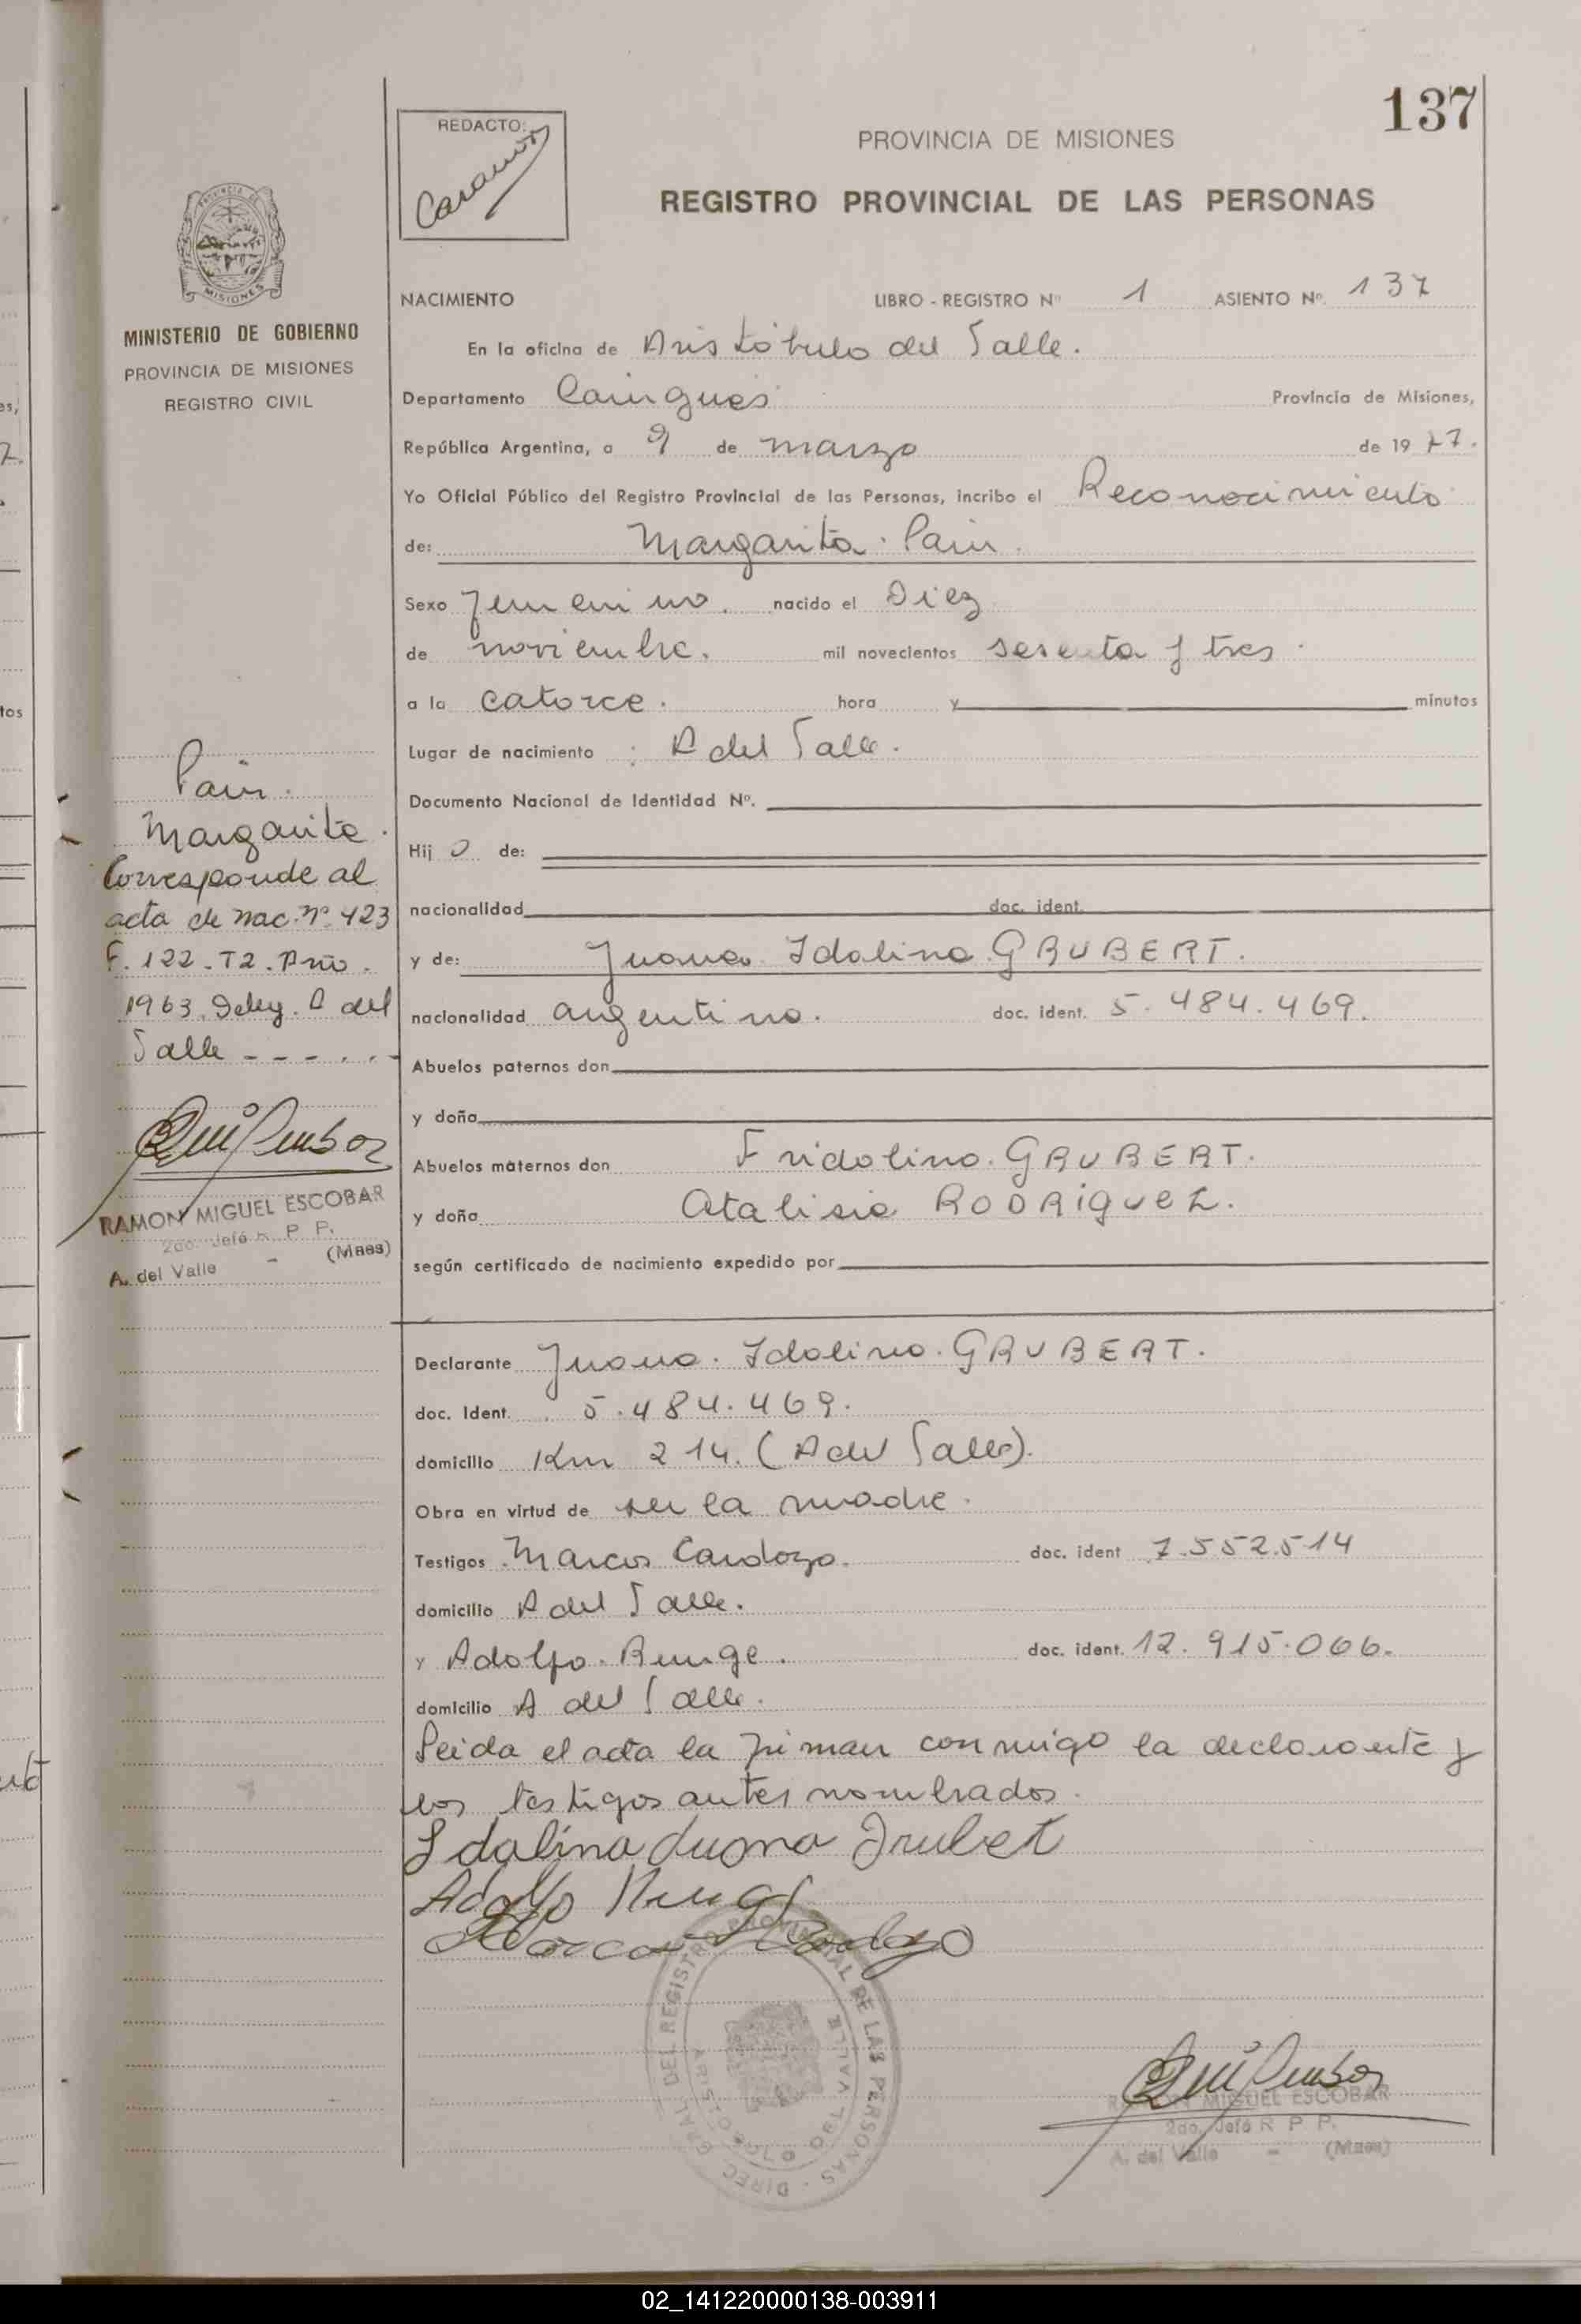 137
REDACTO:
PROVINCIA DE MISIONES
REGISTRO PROVINCIAL DE LAS PERSONAS
PROVINCIA
MISIONES
MINISTERIO DE GOBIERNO
PROVINCIA DE MISIONES
REGISTRO CIVIL
NACIMIENTO LIBRO - REGISTRO Nº 1 ASIENTO Nº 137
En la oficina de Aristóbulo del Valle.
Departamento Cainguás Provincia de Misiones,
República Argentina, a 9 de marzo de 1977.
Yo Oficial Público del Registro Provincial de las Personas, incribo el Reconocimiento
de: Margarita Pain.
Sexo Femenino. nacido el Diez
de noviembre. mil novecientos sesenta y tres.
a la catorce. hora y minutos
Lugar de nacimiento : A del Valle.
Documento Nacional de Identidad Nº.
Hij o de:
nacionalidad doc. ident.
y de: Juana Idalina GRUBERT.
nacionalidad argentina. doc. ident. 5.484.469.
Abuelos paternos don
y doña
Abuelos maternos don Fridolino GRUBERT.
y doña Atalisia RODRIGUEZ.
según certificado de nacimiento expedido por
Declarante Juana Idalina GRUBERT.
doc. Ident. 5.484.469.
domicilio Km 214. (A del Valle).
Obra en virtud de ser la madre.
Testigos Marcos Cardozo. doc. ident 7.552.514
domicilio A del Valle.
y Adolfo Runge. doc. ident. 12.915.066.
domicilio A del Valle.
Leida el acta la firman conmigo la declarante y
los testigos antes nombrados.
Idalina Juana Grubet
Adolfo Rung
Marcos Cardozo
Pain.
Margarita.
Corresponde al
acta de nac. nº 423
F. 122. T2. Año.
1963. Deleg. A del
Valle - - - . . -
RAMON MIGUEL ESCOBAR
2do. Jefe R. P. P.
A. del Valle - (Mnes)
DIREC. GRAL. DEL REGISTRO PROVINCIAL DE LAS PERSONAS
ARISTOBULO DEL VALLE
RAMON MIGUEL ESCOBAR
2do. Jefe R. P. P.
A. del Valle - (Mnes)
02_141220000138-003911